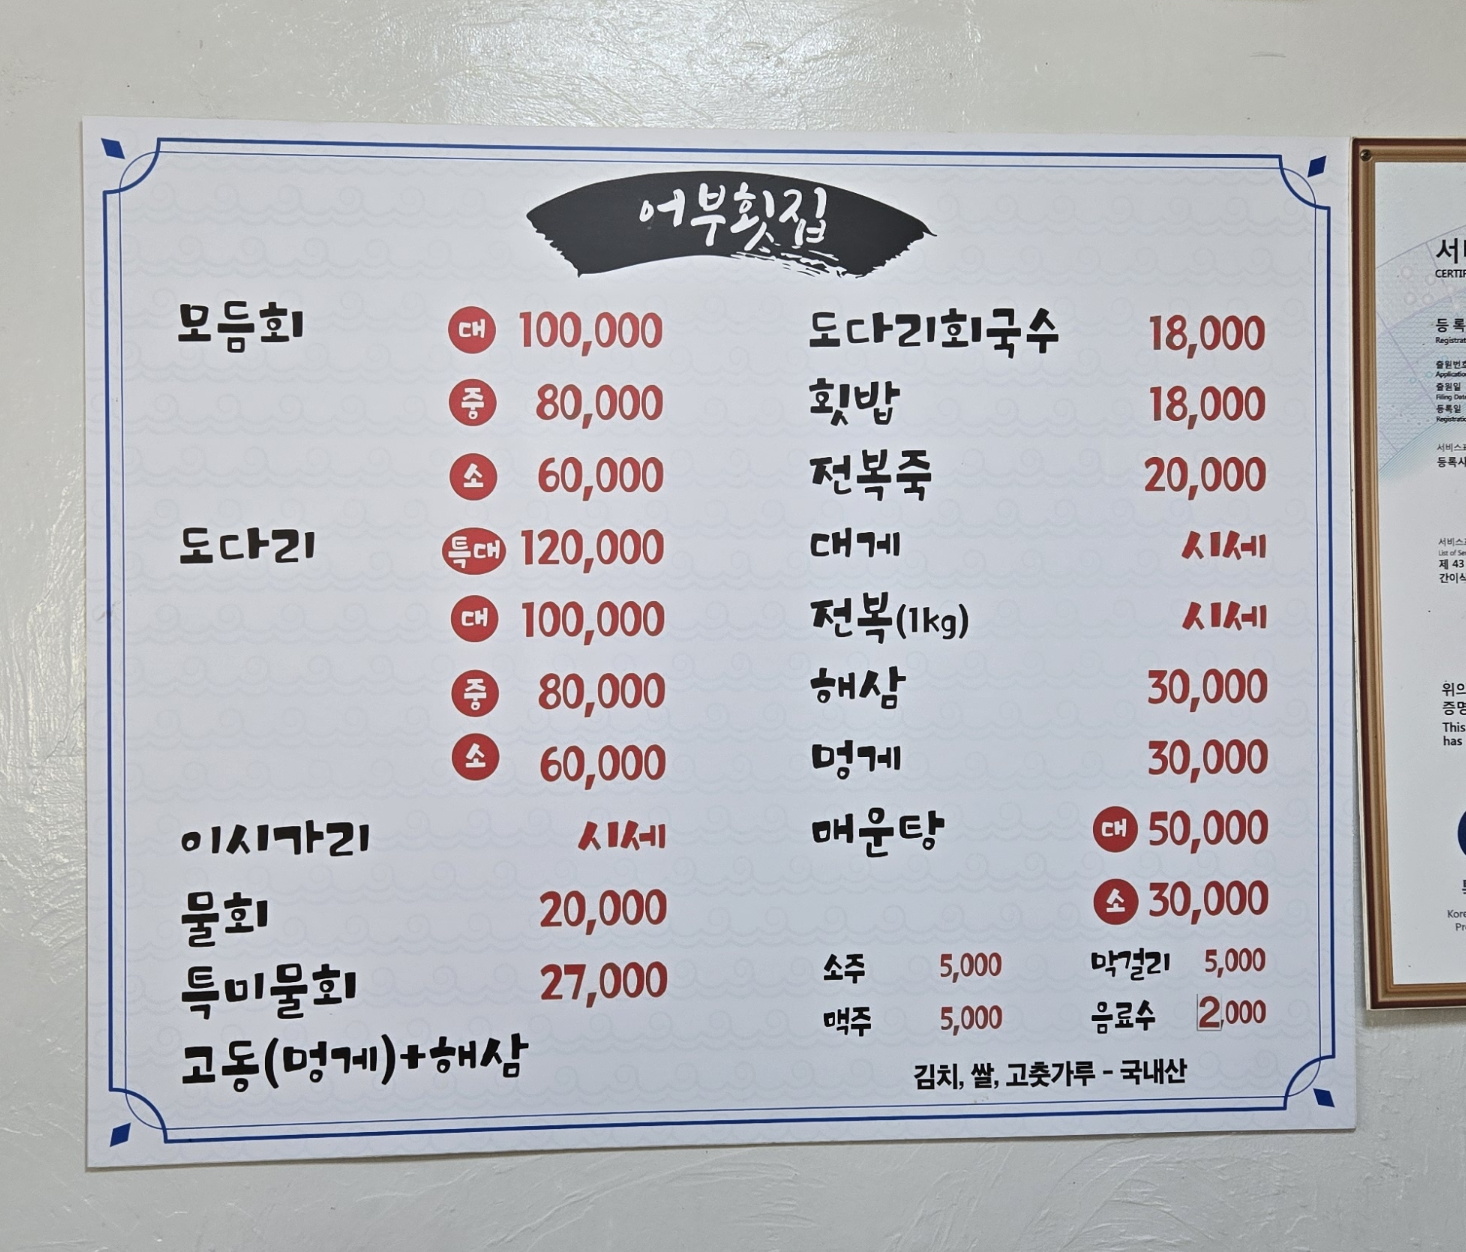 어부횟집
모듬회 대 100,000
중 80,000
소 60,000
도다리 특대 120,000
대 100,000
중 80,000
소 60,000
이시가리 시세
물회 20,000
특미물회 27,000
고동(멍게)+해삼
도다리회국수 18,000
횟밥 18,000
전복죽 20,000
대게 시세
전복(1kg) 시세
해삼 30,000
멍게 30,000
매운탕 대 50,000
소 30,000
소주 5,000 막걸리 5,000
맥주 5,000 음료수 2,000
김치, 쌀, 고춧가루 - 국내산
등록
출원번호
출원일
Filing
등록일
제 43
위의
This
has